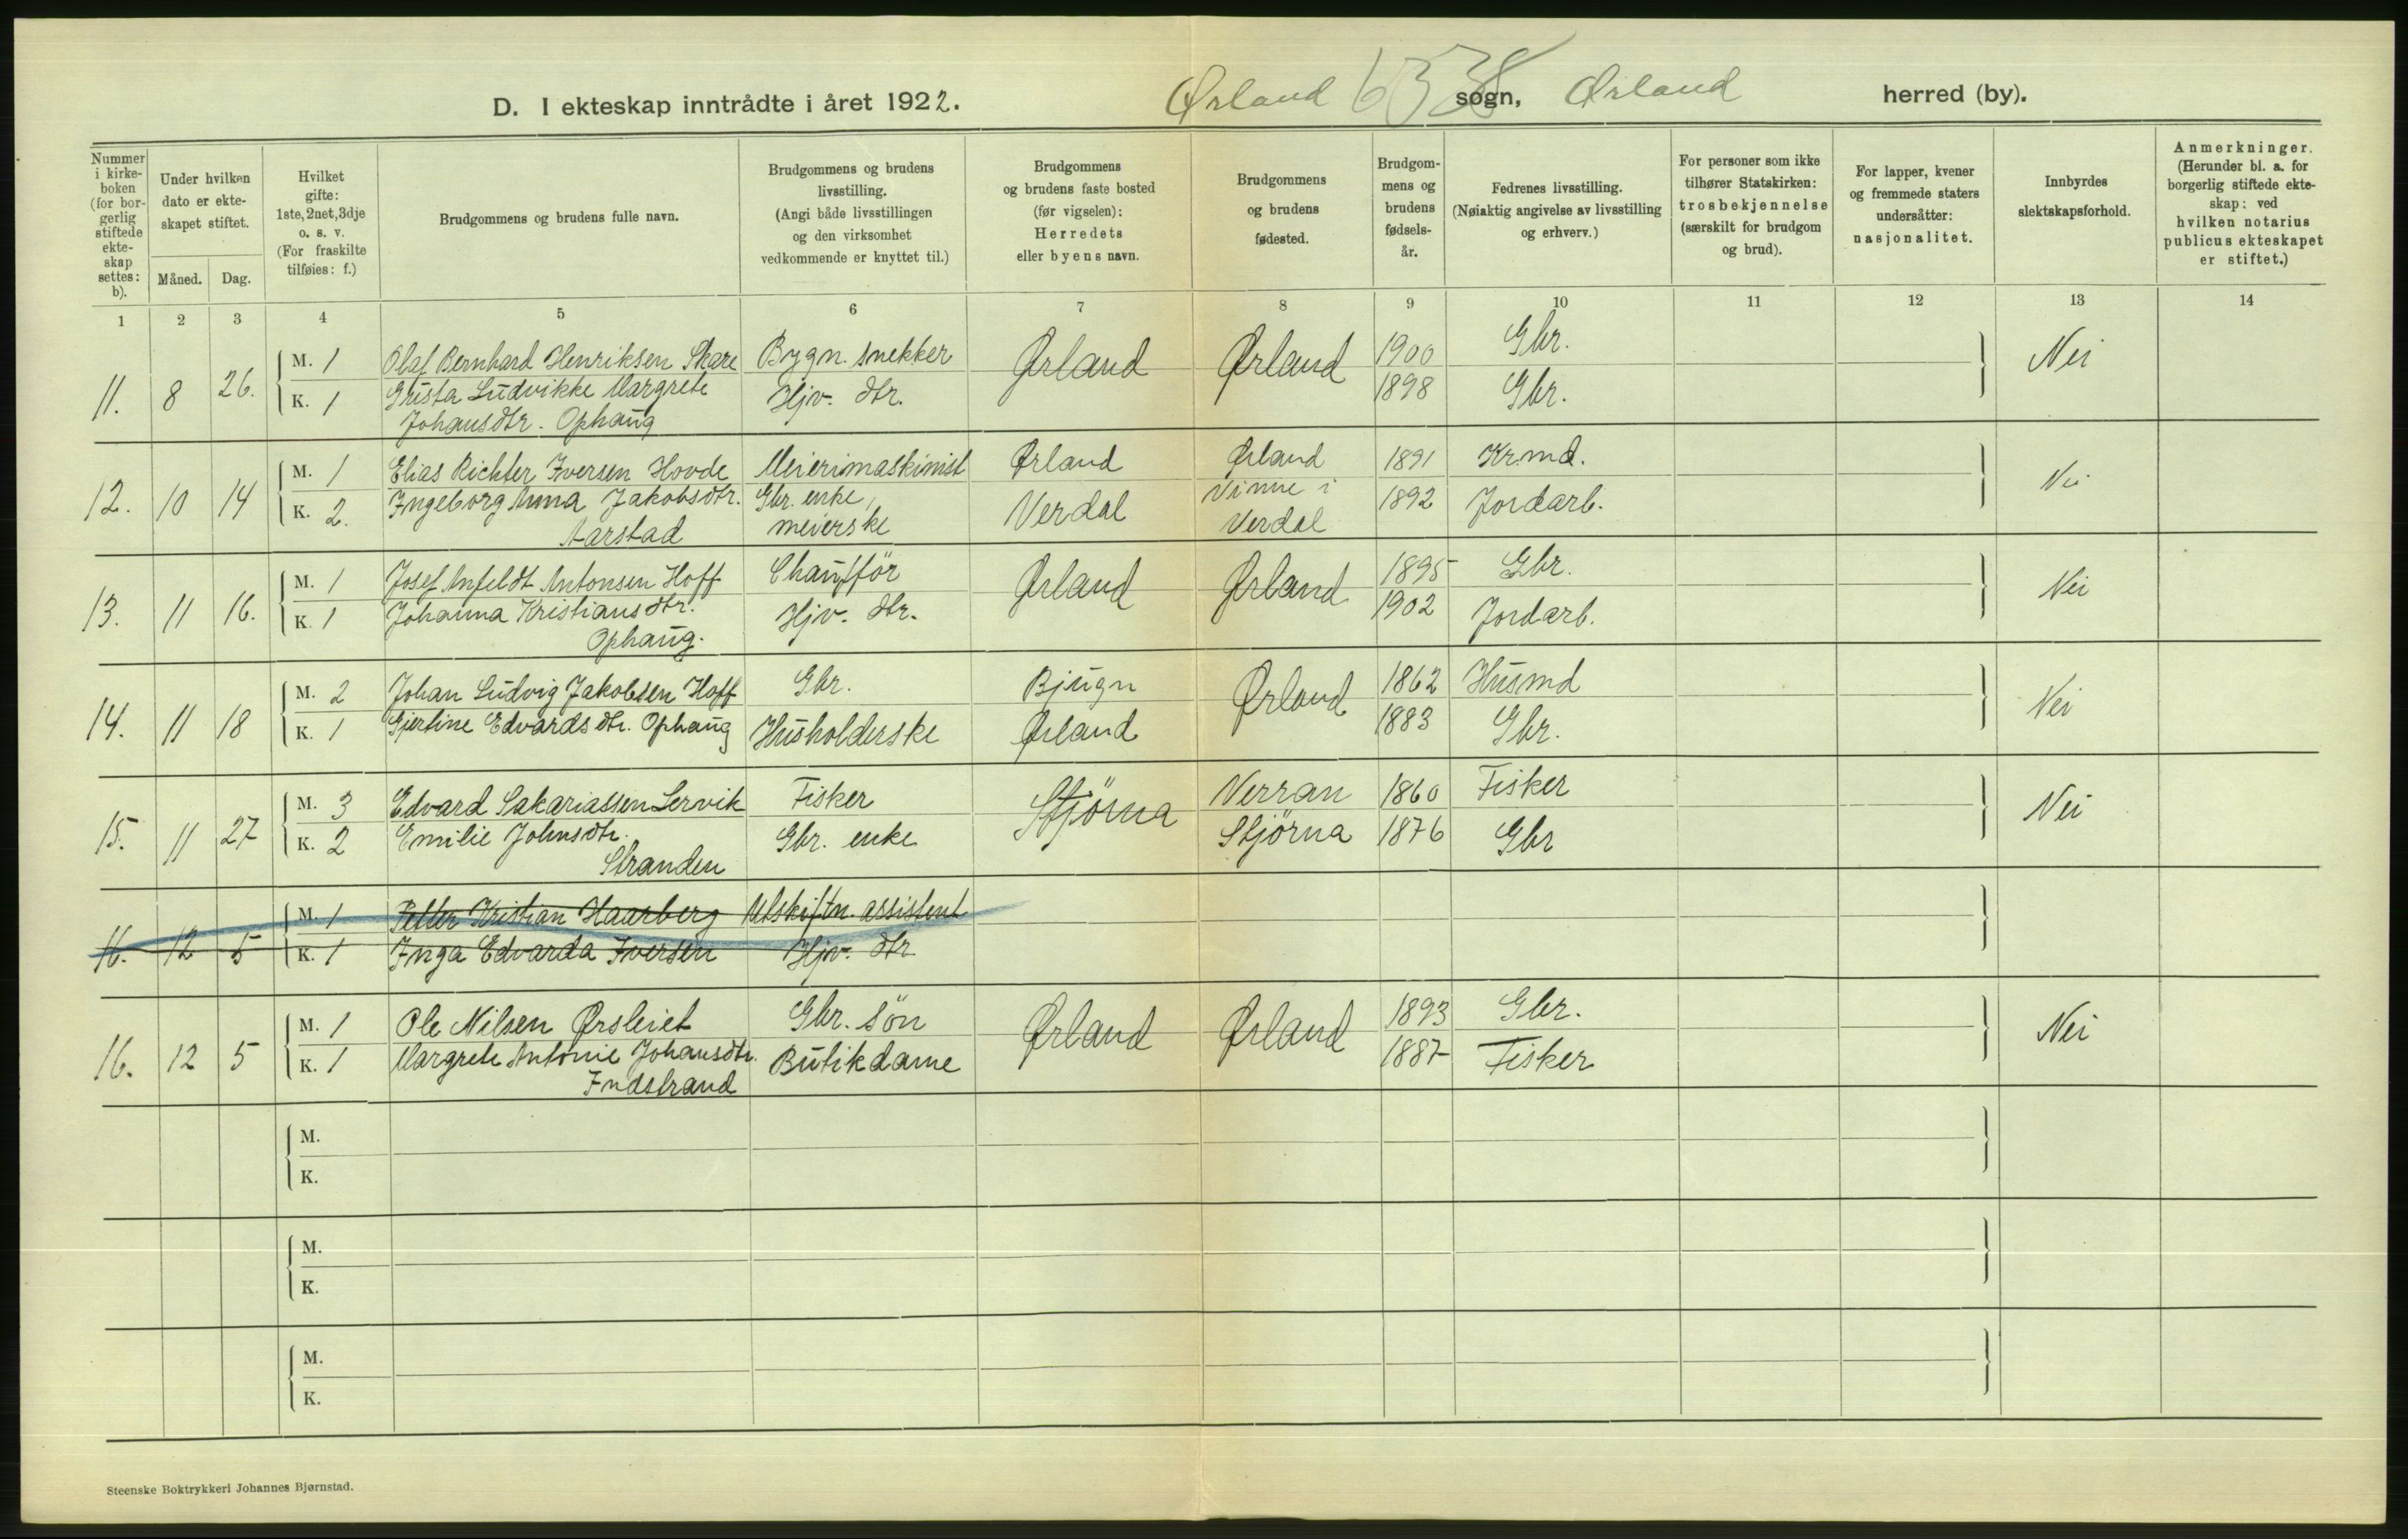 D. I ekteskap inntrådte i året 1922. Ørland sogn, Ørland herred (by).
Nummer i kirkeboken (for borgerlig stiftede ekteskap settes: b).
Under hvilken dato er ekteskapet stiftet.
Måned. Dag.
Hvilket gifte: 1ste, 2net, 3dje o. s. v. (For fraskilte tilføies: f.)
Brudgommens og brudens fulle navn.
Brudgommens og brudens livsstilling. (Angi både livsstillingen og den virksomhet vedkommende er knyttet til.)
Brudgommens og brudens faste bosted (før vigselen): Herredets eller byens navn.
Brudgommens og brudens fødested.
Brudgommens og brudens fødselsår.
Fedrenes livsstilling. (Nøiaktig angivelse av livsstilling og erhverv.)
For personer som ikke tilhører Statskirken: trosbekjennelse (særskilt for brudgom og brud).
For lapper, kvener og fremmede staters undersåtter: nasjonalitet.
Innbyrdes slektskapsforhold.
Anmerkninger. (Herunder bl. a. for borgerlig stiftede ekteskap: ved hvilken notarius publicus ekteskapet er stiftet.)
1 2 3 4 5 6 7 8 9 10 11 12 13 14
11. 8 26. M. 1 Olaf Bernhard Henriksen Skare Bygn. snekker Ørland Ørland 1900 Gbr. Nei
K. 1 Gusta Ludvikke Margrete Hjv. dtr. 1898 Gbr.
Johansdtr. Ophaug
12. 10 14 M. 1 Elias Richter Iversen Hovde Meierimaskinist Ørland Ørland 1891 Kr.md. Nei
K. 2. Ingeborg Anna Jakobsdtr. Gbr. enke, Verdal Vinne i 1892 Jordarb.
Aarstad meierske Verdal
13. 11 16. M. 1 Josef Anfeldt Antonsen Hoff Chaufför Ørland Ørland 1895 Gbr. Nei
K. 1 Johanna Kristiansdtr. Hjv. dtr. 1902 Jordarb.
Ophaug.
14. 11 18 M. 2 Johan Ludvig Jakobsen Hoff Gbr. Bjugn Ørland 1862 Husmd Nei
K. 1 Gjertine Edvardsdtr. Ophaug Husholderske Ørland 1883 Gbr.
15. 11 27 M. 3 Edvard Sakariassen Lervik Fisker Stjörna Verran 1860 Fisker Nei
K. 2 Emilie Johnsdtr. Gbr. enke Stjörna 1876 Gbr
Stranden
16. 12 5 M. 1 Petter Kristian Haarberg Utskiftn. assistent
K. 1 Inga Edvarda Iversen Hjv. dtr
16. 12 5 M. 1 Ole Nilsen Ørsleiet Gbr. sön Ørland Ørland 1893 Gbr. Nei
K. 1 Margrete Antonie Johansdtr. Butikdame 1887 Fisker
Indstrand
M.
K.
M.
K.
M.
K.
Steenske Boktrykkeri Johannes Bjørnstad.